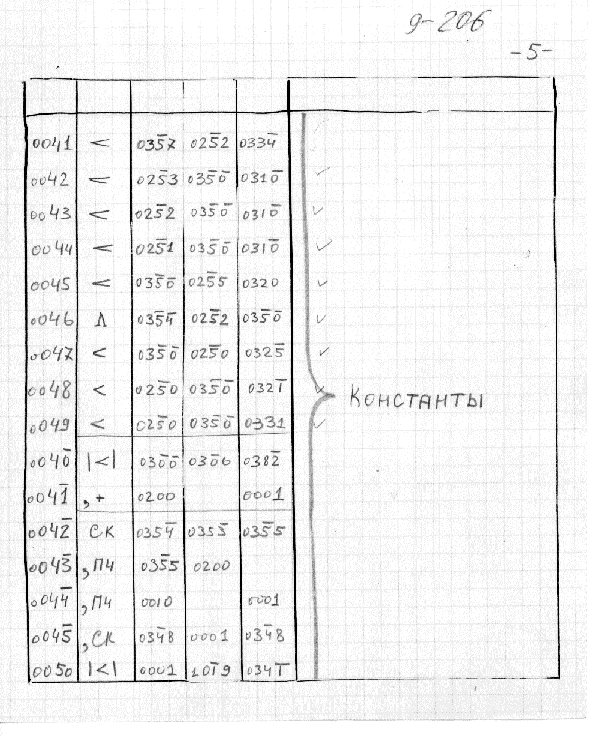 9-206
-5-
0041 < 035̅7 025̅2 0334̅
0042 < 025̅3 035̅0̅ 0310̅
0043 < 025̅2 035̅0̅ 0310̅
0044 < 025̅1 035̅0̅ 0310̅
0045 < 035̅0̅ 025̅5 0320
0046 Λ 035̅4̅ 025̅2 035̅0̅
0047 < 035̅0̅ 025̅0 0325̅
0048 < 025̅0 035̅0̅ 0321̅
0049 < 025̅0 035̅0̅ 0331
Константы
0040̅ |<| 030̅0̅ 0306 0382̅
0041̅ ,+ 0200 0001
0042̅ СК 0354̅ 0355̅ 035̅5
0043̅ ,ПЧ 035̅5 0200
0044̅ ,ПЧ 0010 0001
0045̅ ,СК 034̅8 0001 034̅8
0050 |<| 0001 101̅9 0341̅